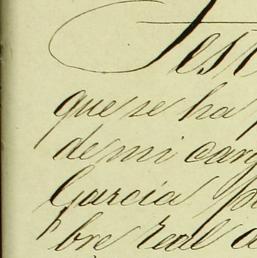 Test
que se ha
de mi car
García p
bre real d